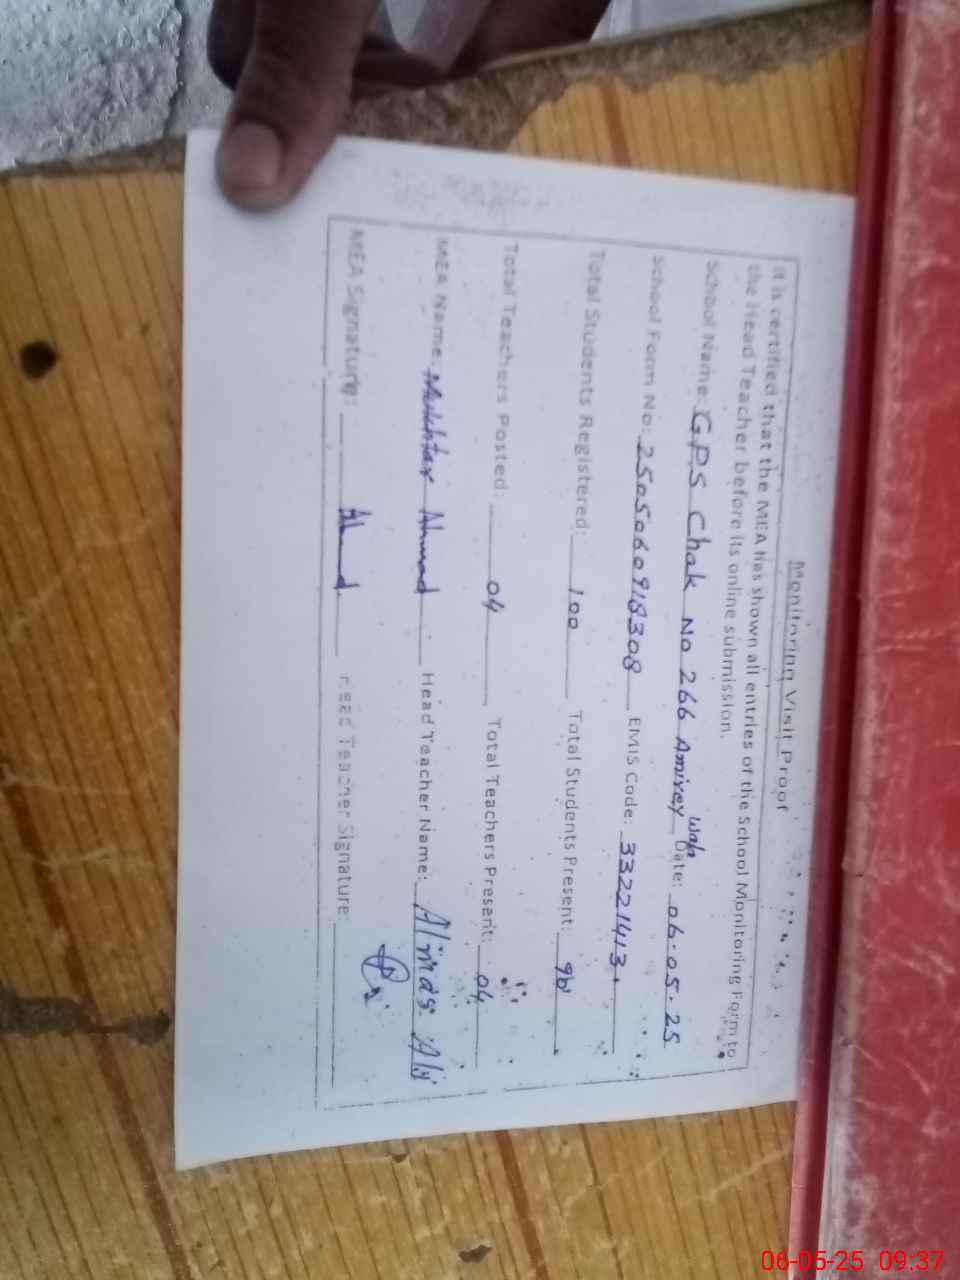 Monitoring Visit Proof
It is certified that the MEA has shown all entries of the School Monitoring Form to
the Head Teacher before its online submission.
School Name: G.P.S Chak No 266 Amirey Wala Date: 06.05.25
School Form No: 2505060918308 EMIS Code: 33221413
Total Students Registered: 100 Total Students Present:
Total Teachers Posted: 04 Total Teachers Present: 04
MEA Name: Mukhtar Ahmad Head Teacher Name: Ali
MEA Signature: Head Teacher Signature:
06-05-25 09:37